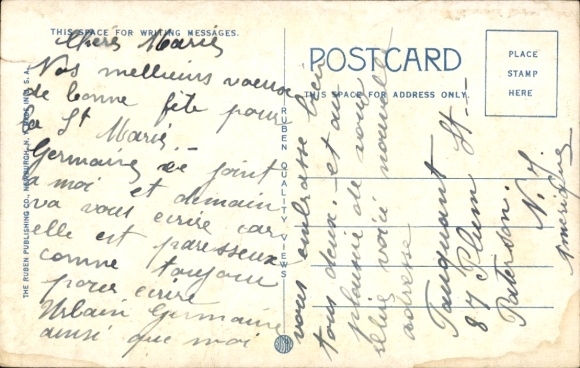 THIS SPACE FOR WRITING MESSAGES.
Chère Marie
Nos meilleurs voeux
de bonne fête pour
la St Marie. -
Germaine se joint
a moi et demain
va vous écrire car
elle est paresseuse
comme toujour
pour écrire
Urbain Germaine
ainsi que moi
vous embrasse bien
tous deux. et au
plaisir de vous
voici nouvelle
adresse
Tauquant
87 Plum St -
Paterson.
N. J.
Amérique
POSTCARD
THIS SPACE FOR ADDRESS ONLY.
PLACE
STAMP
HERE
RUBEN QUALITY VIEWS
THE RUBEN PUBLISHING CO., NEWBURGH, N. Y. U. S. A.